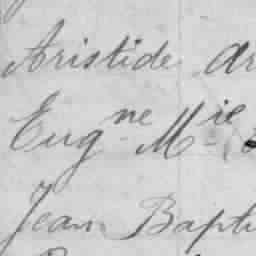 Aristide Ar
Eug ne M ie
Jean Bapti